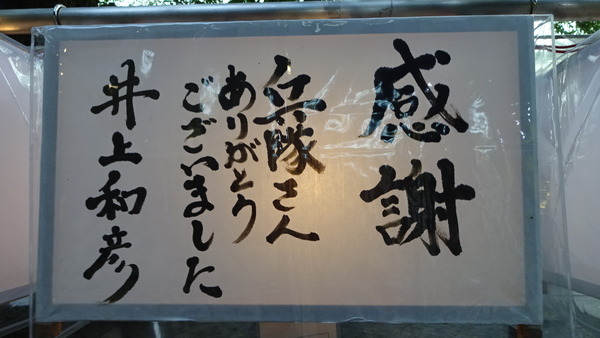 感謝
兵隊さん
ありがとう
ございました
井上和彦